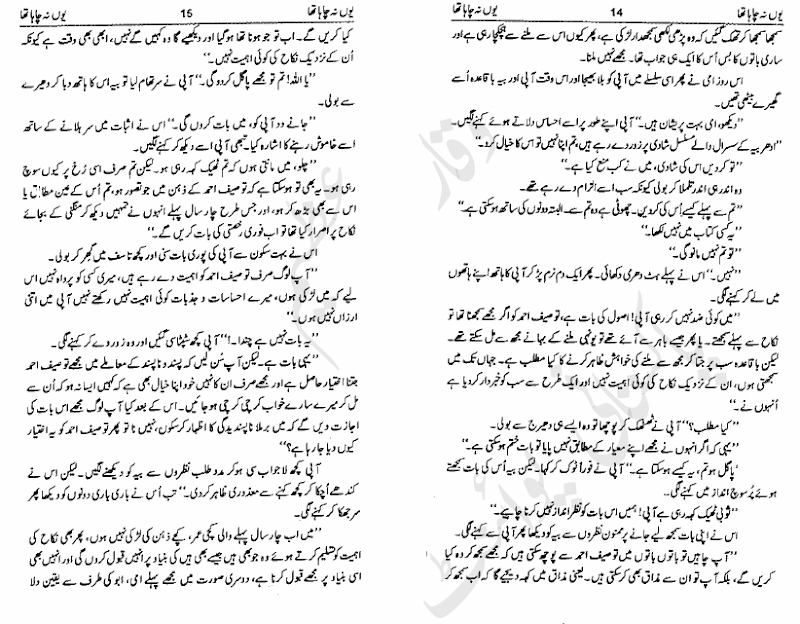 یوں نہ چاہا تھا 14 یوں نہ چاہا تھا
سمجھا سمجھا کر تھک گئیں کہ وہ پڑھی لکھی سمجھدار لڑکی ہے، پھر کیوں اس سے ملنے سے ہچکچا رہی ہے اور
ساری باتوں کا بس اُس کا ایک ہی جواب تھا۔ مجھے نہیں ملنا۔
اس روز امی نے پھر اسی سلسلے میں آپی کو بلا بھیجا اور اس وقت آپی اور بیہ باقاعدہ اُسے
گھیرے بیٹھی تھیں۔
”دیکھو، امی بہت پریشان ہیں۔“ آپی اپنے طور پر اسے احساس دلاتے ہوئے کہنے لگیں۔
”ادھر بیہ کے سسرال والے مسلسل شادی پر زور دے رہے ہیں، تم اپنا نہیں تو اس کا خیال کرو۔“
”تو کر دیں اس کی شادی، میں نے کب منع کیا ہے۔“
وہ اندر ہی اندر تلملا کر بولی کیونکہ سب اسے الزام دے رہے تھے۔
”تم سے پہلے کیسے اِس کی کر دیں۔ چھوٹی ہے وہ تم سے۔ البتہ دونوں کی ساتھ ہو سکتی ہے۔“
”یہ کسی کتاب میں نہیں لکھا۔“
”تو تم نہیں مانو گی۔“
”نہیں۔“ اس نے پہلے ہٹ دھری دکھائی۔ پھر ایک دم نرم پڑ کر آپی کا ہاتھ اپنے ہاتھوں
میں لے کر کہنے لگی۔
”میں کوئی ضد نہیں کر رہی آپی! اصول کی بات ہے، توصیف احمد کو اگر مجھے سمجھنا تھا تو
نکاح سے پہلے سمجھتے۔ یا پھر جیسے باہر سے آئے تھے تو یونہی ملنے کے بہانے مجھ سے مل سکتے تھے۔
لیکن باقاعدہ سب پر جتا کر مجھ سے ملنے کی خواہش ظاہر کرنے کا کیا مطلب ہے۔ جہاں تک میں
سمجھتی ہوں، ان کے نزدیک نکاح کی کوئی اہمیت نہیں اور ایک طرح سے سب کو خبردار کر دیا ہے
اُنہوں نے۔“
”کیا مطلب؟“ آپی نے ٹھٹک کر پوچھا تو وہ ایسے ہی دھیرج سے بولی۔
”یہی کہ اگر انہوں نے مجھے اپنے معیار کے مطابق نہیں پایا تو بات ختم ہو سکتی ہے۔“
”پاگل ہو تم، یہ کیسے ہو سکتا ہے۔“ آپی نے فوراً ٹوک کر کہا۔ لیکن بیہ اُس کی بات سمجھتے
ہوئے پُر سوچ انداز میں کہنے لگی۔
”ٹوبی ٹھیک کہہ رہی ہے آپی! ہمیں اس بات کو نظر انداز نہیں کرنا چاہیے۔“
اس نے اپنی بات سمجھ لیے جانے پر ممنون نظروں سے بیہ کو دیکھا پھر آپی سے کہنے لگی۔
”آپ چاہیں تو باتوں باتوں میں توصیف احمد سے پوچھ سکتی ہیں کہ مجھے سمجھ کر وہ کیا
کریں گے، بلکہ آپ تو ان سے مذاق بھی کر سکتی ہیں۔ یعنی مذاق میں کہہ دیجیے گا کہ اب سمجھ کر
یوں نہ چاہا تھا 15 یوں نہ چاہا تھا
کیا کریں گے۔ اب تو جو ہونا تھا ہو گیا اور دیکھیے گا وہ کہیں گے نہیں، ابھی بھی وقت ہے کیونکہ
اُن کے نزدیک نکاح کی کوئی اہمیت نہیں۔“
”یا اللہ! تم تو مجھے پاگل کر دو گی۔“ آپی نے سر تھام لیا تو بیہ اس کا ہاتھ دبا کر دھیرے
سے بولی۔
”جانے دو آپی کو، میں بات کروں گی۔“ اس نے اثبات میں سر ہلانے کے ساتھ
اسے خاموش رہنے کا اشارہ کیا۔ تبھی آپی اسے دیکھ کر کہنے لگیں۔
”چلو، میں مانتی ہوں کہ تم ٹھیک کہہ رہی ہو۔ لیکن تم صرف اسی رُخ پر کیوں سوچ
رہی ہو۔ یہ بھی تو ہو سکتا ہے کہ توصیف احمد کے ذہن میں جو تصور ہو، تم اُس کے عین مطابق یا
اس سے بھی بڑھ کر ہو، اور جس طرح چار سال پہلے انہوں نے تمہیں دیکھ کر منگنی کے بجائے
نکاح پر اصرار کیا تھا تو اب فوری رخصتی کی بات کریں گے۔“
اس نے بہت سکون سے آپی کی پوری بات سنی اور کچھ تاسف میں گھر کر بولی۔
”آپ لوگ صرف توصیف احمد کو اہمیت دے رہے ہیں، میری کسی کو پرواہ نہیں اس
لیے کہ میں لڑکی ہوں، میرے احساسات و جذبات کوئی اہمیت نہیں رکھتے نہیں آپی میں اتنی
ارزاں نہیں ہوں۔“
”یہ بات نہیں ہے چندا۔!“ آپی کچھ سٹپٹا سی گئیں اور وہ زور دے کر کہنے لگی۔
”یہی بات ہے۔ لیکن آپ سُن لیں کہ پسند و ناپسند کے معاملے میں مجھے توصیف احمد
جتنا اختیار حاصل ہے اور مجھے صرف ان کا نہیں خود اپنا خیال بھی ہے کہ کہیں ایسا نہ ہو کہ اُن سے
مل کر میرے سارے خواب کرچی کرچی ہو جائیں۔ اس کے بعد کیا آپ لوگ مجھے اس بات کی
اجازت دیں گے کہ میں برملا ناپسندیدگی کا اظہار کر سکوں، نہیں نا تو پھر توصیف احمد کو یہ اختیار
کیوں دیا جا رہا ہے؟“
آپی کچھ لا جواب سی ہو کر مدد طلب نظروں سے بیہ کو دیکھنے لگیں۔ لیکن اس نے
کندھے اُچکا کر کچھ کہنے سے معذوری ظاہر کر دی۔“ تب اُس نے باری باری دونوں کو دیکھا پھر
سر جھٹک کر کہنے لگی۔
”میں اب چار سال پہلے والی کچی عمر، کچے ذہن کی لڑکی نہیں ہوں، پھر بھی نکاح کی
اہمیت کو تسلیم کرتے ہوئے وہ جو بھی ہیں جیسے بھی ہیں کی بنیاد پر انہیں قبول کروں گی اور انہیں بھی
اسی بنیاد پر مجھے قبول کرنا ہے، دوسری صورت میں مجھے پہلے امی، ابو کی طرف سے یقین دلا